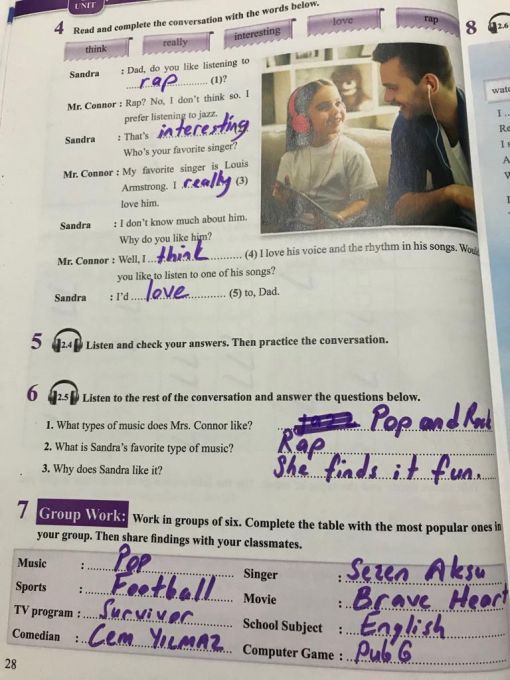 UNIT
4 Read and complete the conversation with the words below.
think really interesting love rap
Sandra : Dad, do you like listening to
rap (1)?
Mr. Connor : Rap? No, I don't think so. I
prefer listening to jazz.
Sandra : That's interesting
Who's your favorite singer?
Mr. Connor : My favorite singer is Louis
Armstrong. I really (3)
love him.
Sandra : I don't know much about him.
Why do you like him?
Mr. Connor : Well, I think (4) I love his voice and the rhythm in his songs. Woul
you like to listen to one of his songs?
Sandra : I'd love (5) to, Dad.
5 2.4 Listen and check your answers. Then practice the conversation.
6 2.5 Listen to the rest of the conversation and answer the questions below.
1. What types of music does Mrs. Connor like? Pop and Rock
2. What is Sandra's favorite type of music? Rap
3. Why does Sandra like it? She finds it fun.
7 Group Work: Work in groups of six. Complete the table with the most popular ones in
your group. Then share findings with your classmates.
Music : Pop Singer : Sezen Aksu
Sports : Football Movie : Brave Heart
TV program : Survivor School Subject : English
Comedian : Cem YILMAZ Computer Game : PubG
28
8 2.6
watc
I
Re
I s
A
W